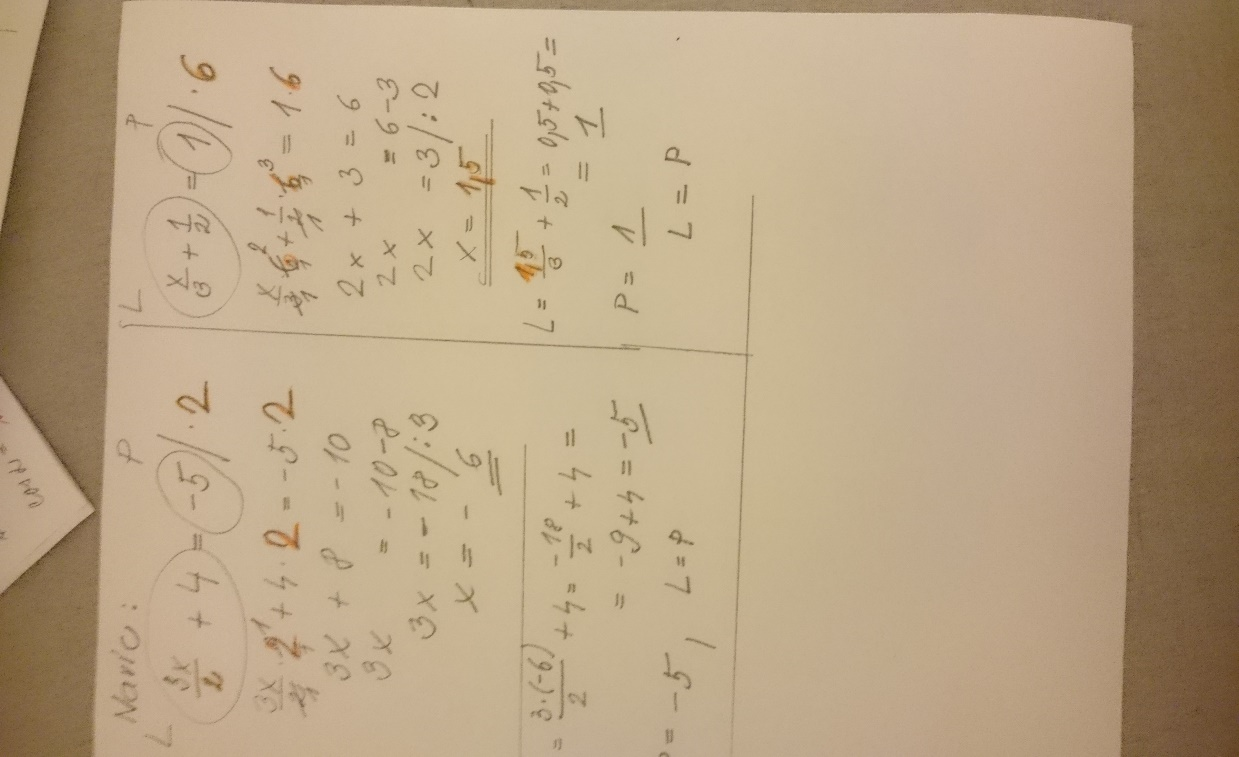 Navic:
L P
3x/2 + 4 = -5 /·2
3x/2·2¹ + 4·2 = -5·2
3x + 8 = -10
3x = -10-8
3x = -18/:3
x = -6
= 3·(-6)/2 + 4 = -18/2 + 4 =
= -9+4 = -5
= -5, L=P
L P
x/3 + 1/2 = 1 /·6
x/3₁·6² + 1/2₁·6³ = 1·6
2x + 3 = 6
2x = 6-3
2x = 3/:2
x = 1,5
L = 1,5/3 + 1/2 = 0,5+0,5 =
= 1
P = 1
L = P